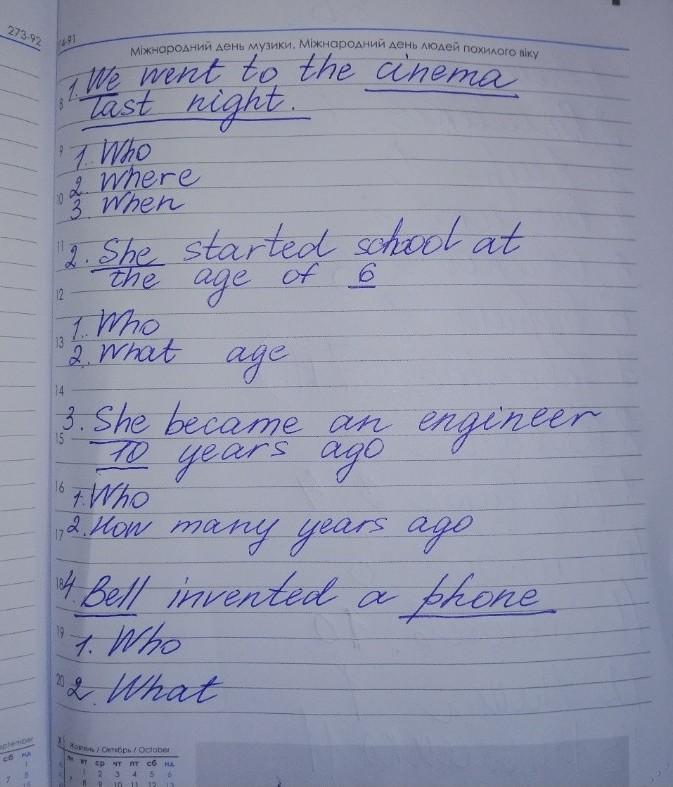 273-92
Міжнародний день музики. Міжнародний день людей похилого віку
1. We went to the cinema
8 last night.
9 1. Who
2. Where
10 3. When
11 2. She started school at
12 the age of 6
1. Who
13 2. What age
14
3. She became an engineer
15 10 years ago
16 1. Who
17 2. How many years ago
18 4. Bell invented a phone
19 1. Who
20 2. What
X Жовтень / Октябрь / October
пн вт ср чт пт сб нд
1 2 3 4 5 6
сб нд
1
7 8